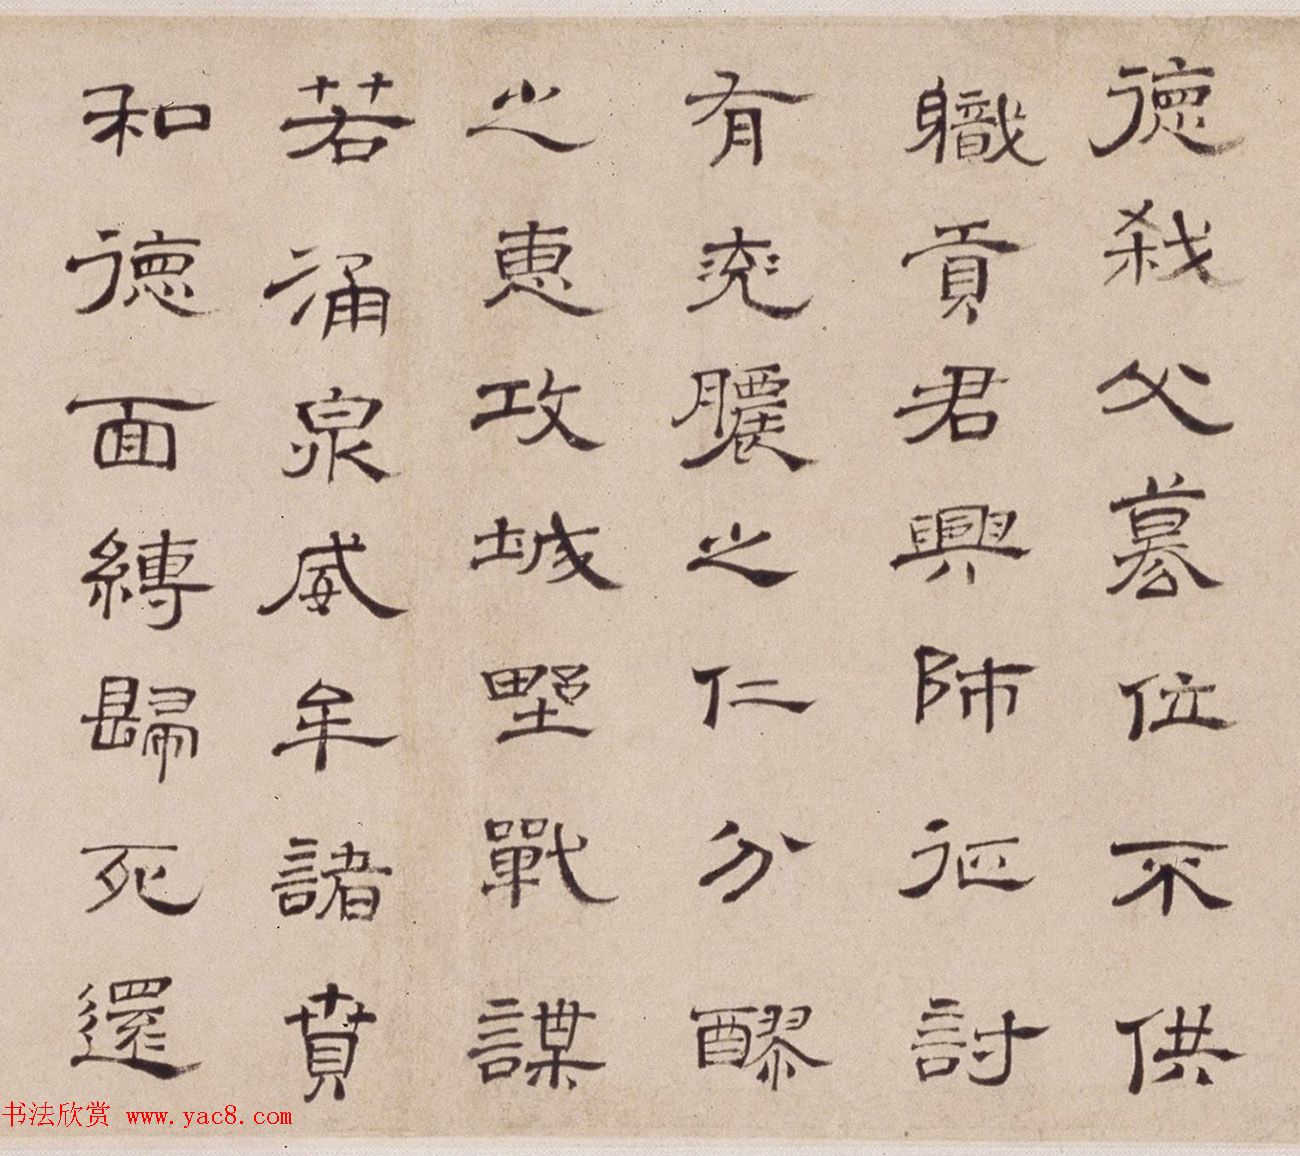 德弒父篡位不供
職貢君興師征討
有兖膿之仁分醪
之惠攻城野戰謀
若涌泉威牟諸賁
和德面縛歸死還
书法欣赏 www.yac8.com